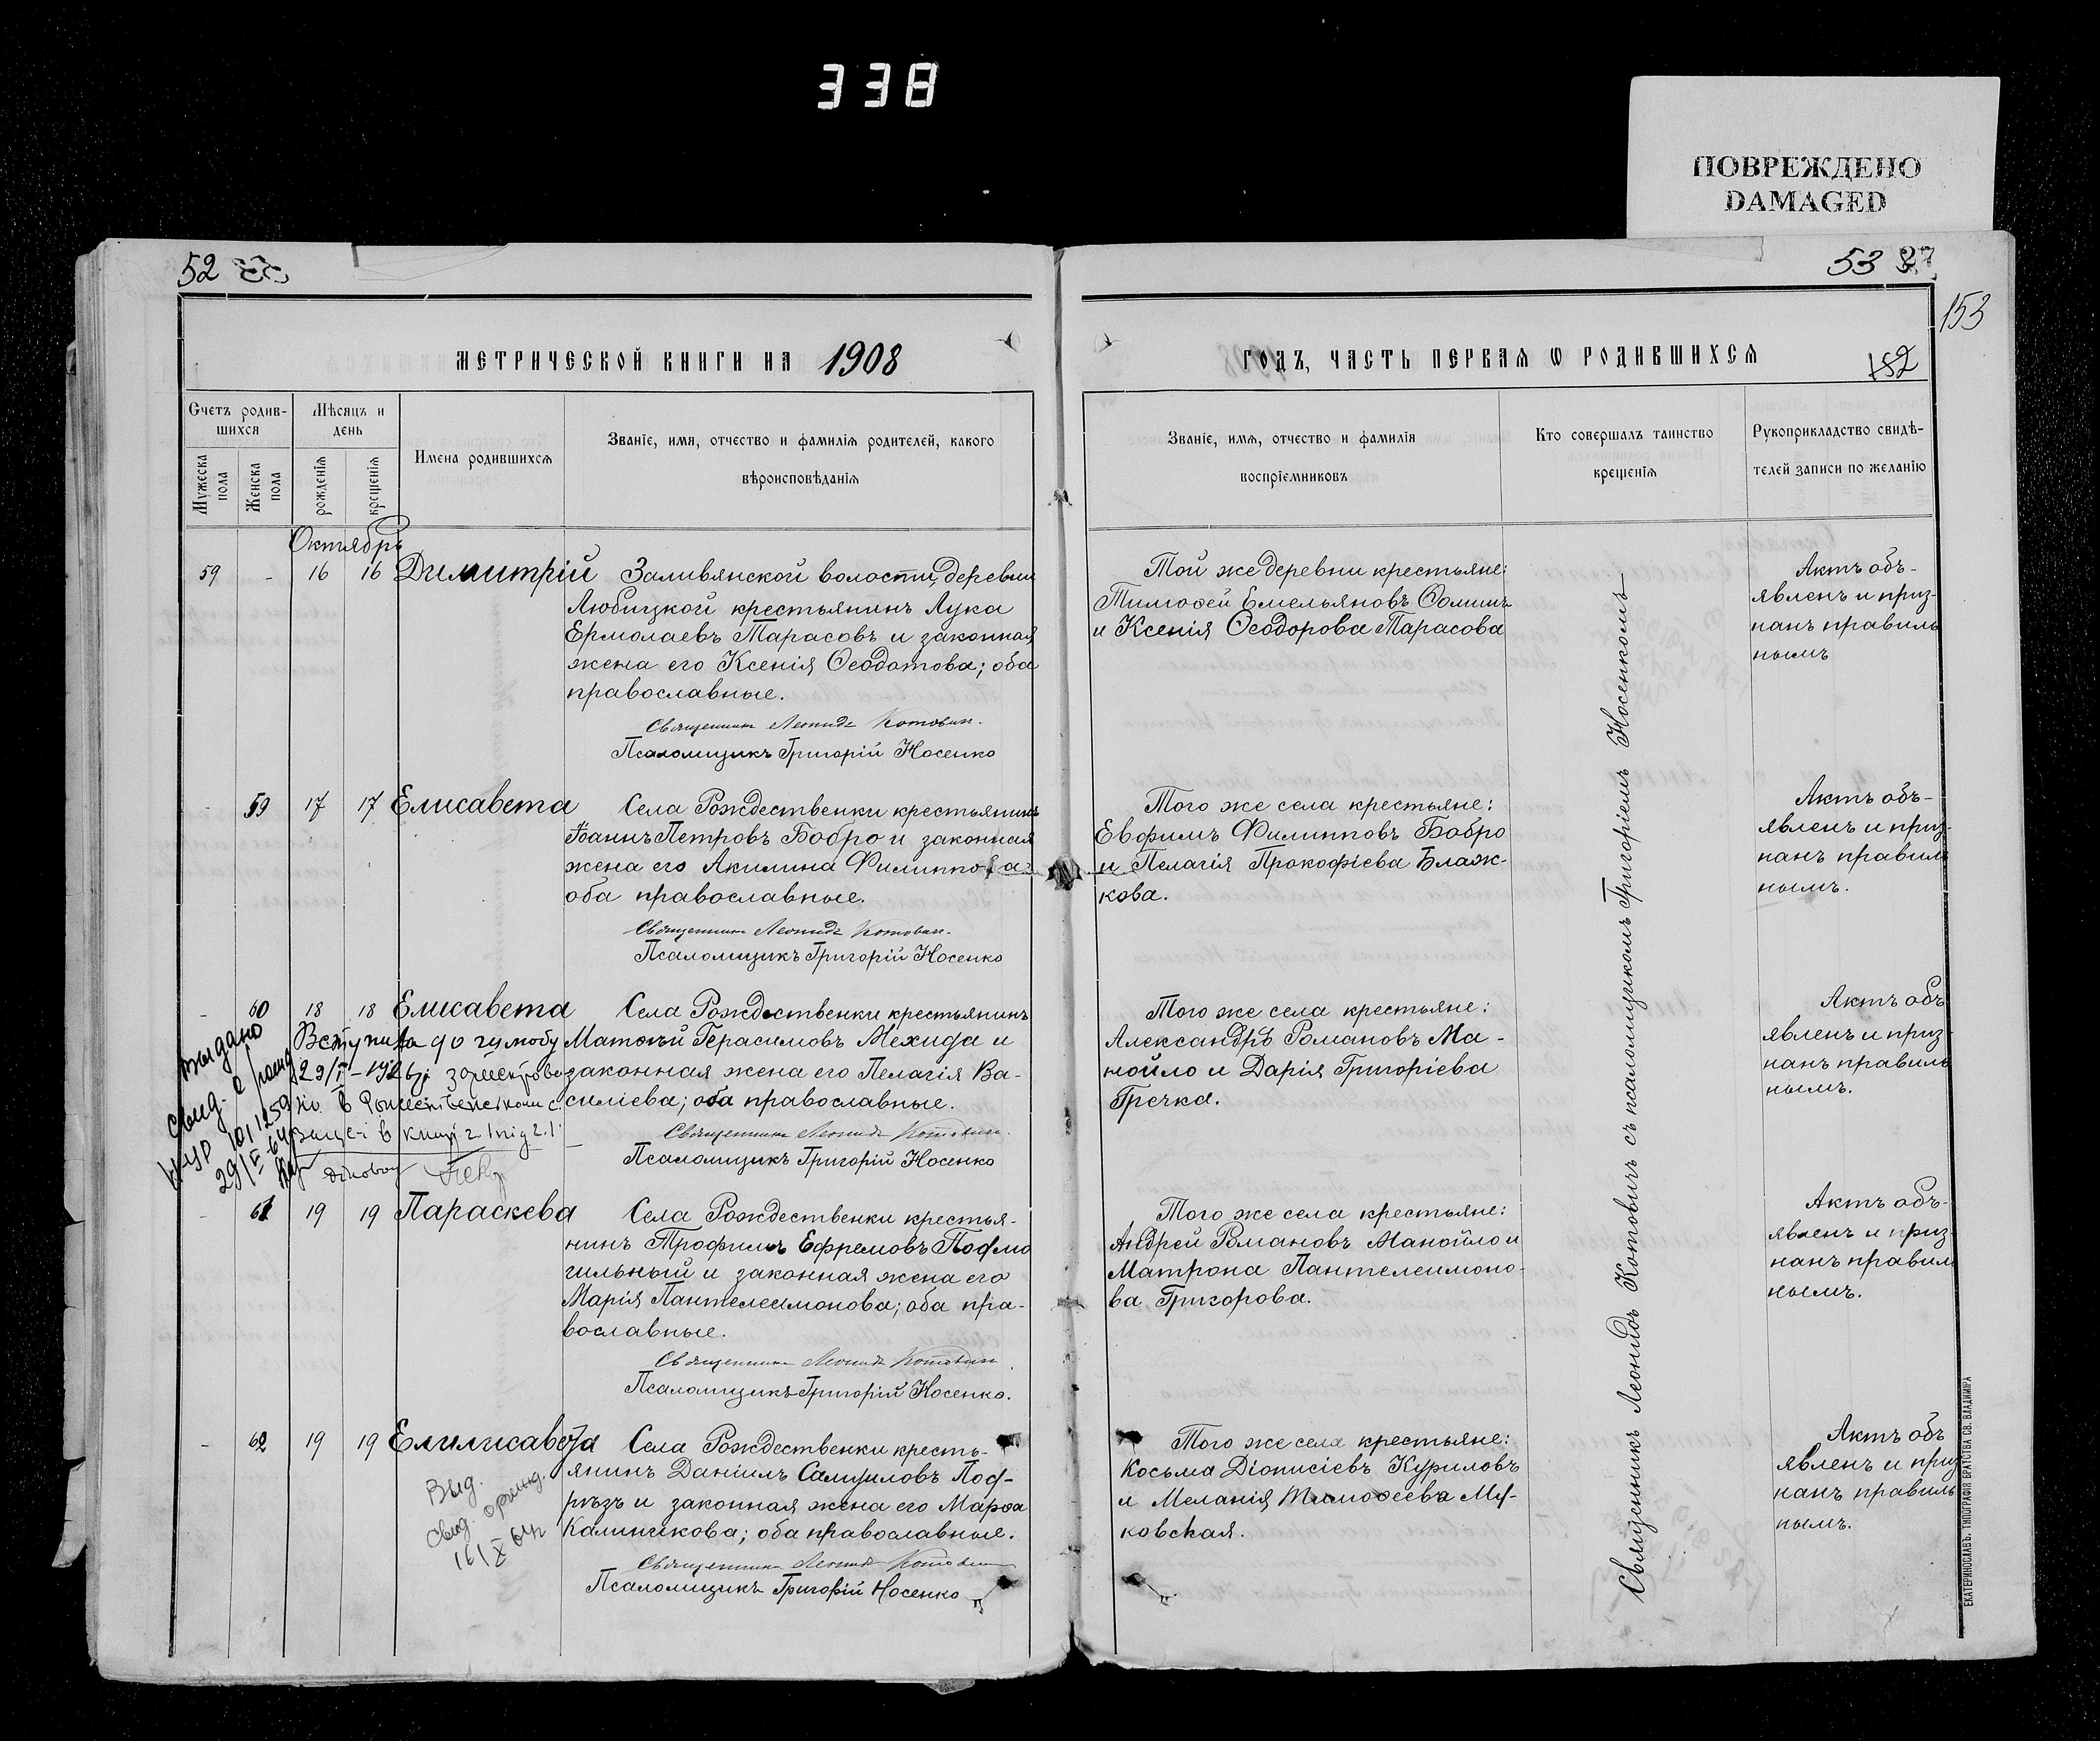 338
ПОВРЕЖДЕНО
DAMAGED
52
53 27
153
МЕТРИЧЕСКОЙ КНИГИ НА 1908
ГОДЪ, ЧАСТЬ ПЕРВАЯ Ѡ РОДИВШИХСЯ
152
Счетъ родив-
шихся
Мѣсяцъ и
день
Мужеска
пола
Женска
пола
рожденія
крещенія
Имена родившихся
Званіе, имя, отчество и фамилія родителей, какого
вѣроисповѣданія
Званіе, имя, отчество и фамилія
воспріемниковъ
Кто совершалъ таинство
крещенія
Рукоприкладство свидѣ-
телей записи по желанію
Октябрь
59 - 16 16 Димитрій Заливянской волости, деревни
Любицкой крестьянинъ Лука
Ермолаевъ Тарасовъ и законная
жена его Ксенія Ѳеодотова; оба
православные.
Священникъ Леонидъ Котовичъ.
Псаломщикъ Григорій Носенко
Той же деревни крестьяне:
Тимоѳей Емельяновъ Ѳоминъ
и Ксенія Ѳеодорова Тарасова
Актъ объ-
явленъ и приз-
нанъ правиль
нымъ
- 59 17 17 Елисавета Села Рождественки крестьянинъ
Іоаннъ Петровъ Бобро и законная
жена его Акилина Филиппова;
оба православные.
Священникъ Леонидъ Котовичъ.
Псаломщикъ Григорій Носенко
Того же села крестьяне:
Евфимъ Филипповъ Бобро
и Пелагія Прокофіева Блаж-
кова.
Актъ объ-
явленъ и приз-
нанъ правиль
нымъ.
- 60 18 18 Елисавета Села Рождественки крестьянинъ
Матѳей Герасимовъ Мехида и
законная жена его Пелагія Ва-
силіева; оба православные.
Священникъ Леонидъ Котовичъ.
Псаломщикъ Григорій Носенко
Выдано
свид. о рожд
101259
Вступила до шлюбу
в Рождественском с.
в книзі
Того же села крестьяне:
Александръ Романовъ Ма-
нойло и Дарія Григоріева
Гречка.
Актъ объ
явленъ и приз-
нанъ правиль
нымъ.
- 61 19 19 Параскева Села Рождественки крестья-
нинъ Трофимъ Ефремовъ Подмо
гильный и законная жена его
Марія Пантелеимонова; оба пра-
вославные.
Священникъ Леонидъ Котовичъ
Псаломщикъ Григорій Носенко.
Того же села крестьяне:
Андрей Романовъ Манойло и
Матрона Пантелеимоно-
ва Григорова.
Актъ объ-
явленъ и приз-
нанъ правил
нымъ.
- 62 19 19 Елилисавета Села Рождественки кресть-
янинъ Даніилъ Самуиловъ Под-
рѣзъ и законная жена его Марѳа
Калиникова; оба православные.
Священникъ Леонидъ Котовичъ
Псаломщикъ Григорій Носенко
Выд.
свид. о рожд.
16/X 64г
Того же села крестьяне:
Косьма Діонисіевъ Куриловъ
и Меланія Тимоѳеева Му-
ковская.
Актъ объ
явленъ и приз
нанъ правиль
нымъ.
Священникъ Леонидъ Котовичъ съ псаломщикомъ Григоріемъ Носенкомъ
ЕКАТЕРИНОСЛАВЪ. ТИПОГРАФІЯ БРАТСТВА СВ. ВЛАДИМІРА